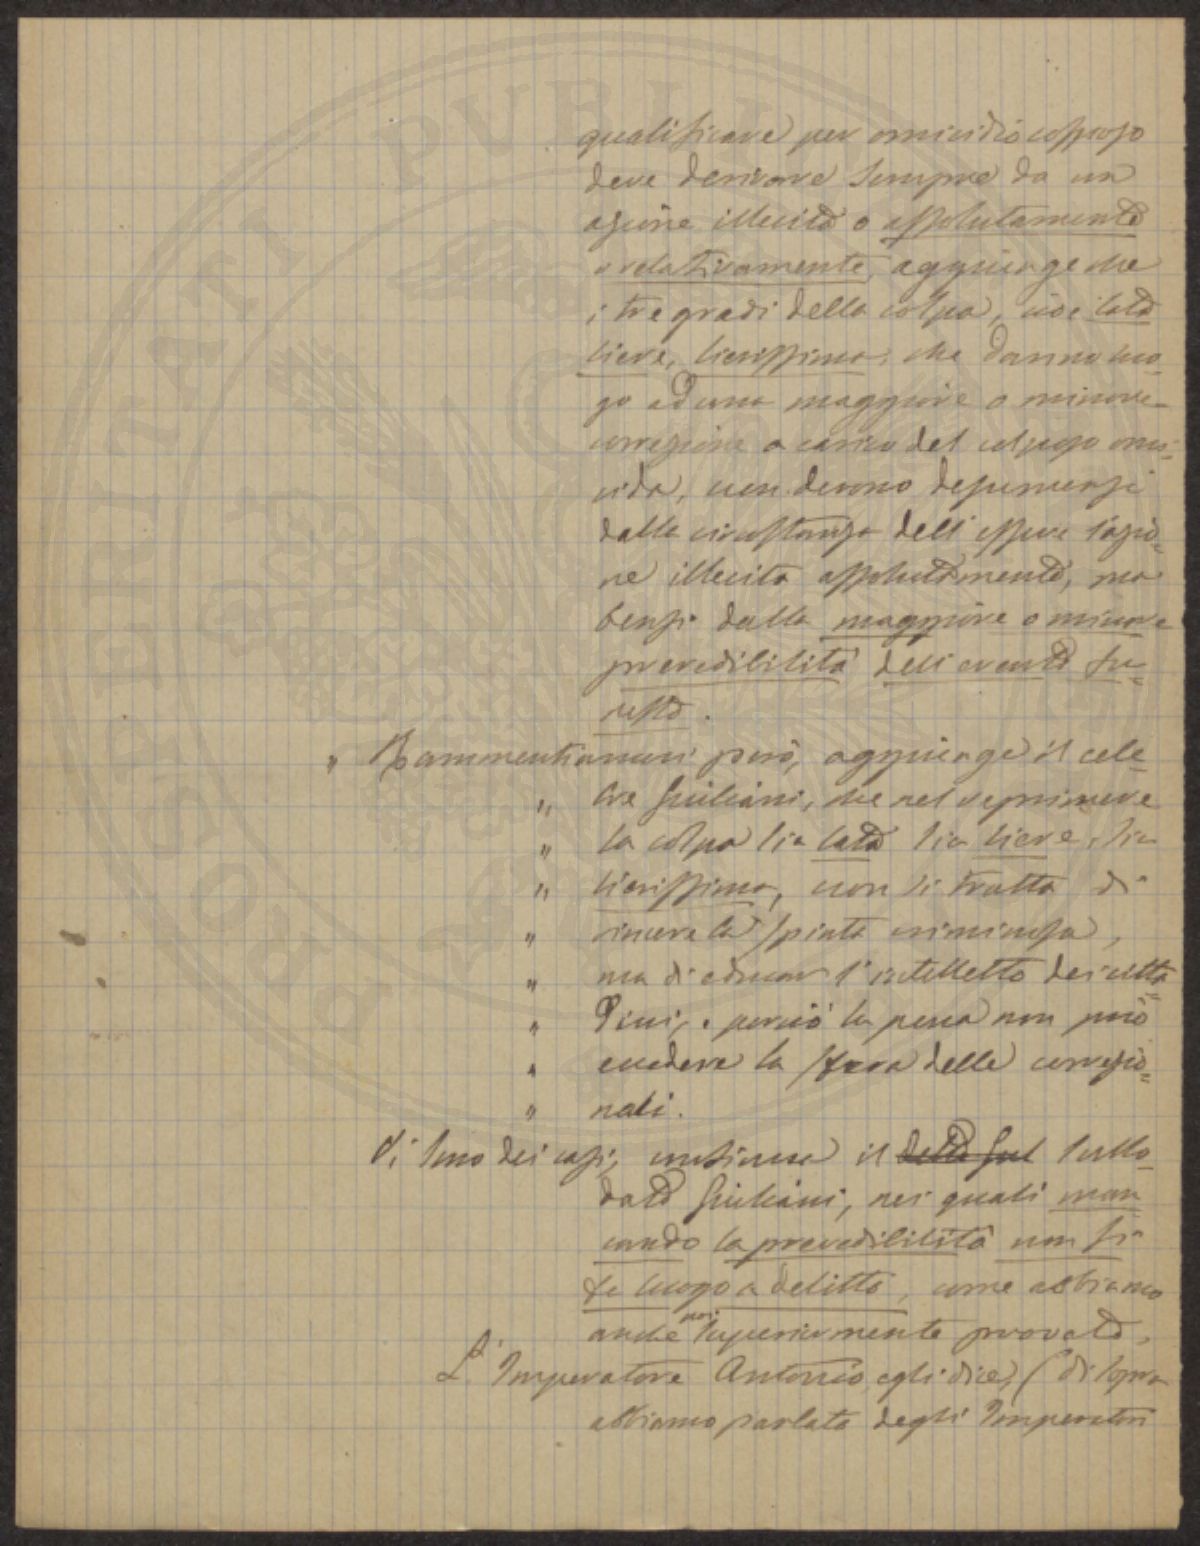 qualificare per omicidio colposo
deve derivare sempre da un
azione illecita o assolutamente
o relativamente, aggiunge che
i tre gradi della colpa, cioè lata
lieve, lievissima, che danno luo-
go ad una maggiore o minore
correzione a carico del colposo omi-
cida, non devono desumersi
dalla circostanza dell'essere l'azio-
ne illecita assolutamente, ma
bensì dalla maggiore o minore
prevedibilità dell'evento fu-
nesto.
" Rammentiamoci però, aggiunge il cele-
" bre Giuliani, che nel reprimere
" la colpa sia lata sia lieve, sia
" lievissima, non si tratta di
" vincere la spinta criminosa,
" ma di educar l'intelletto dei citta-
" dini, e perciò la pena non può
" eccedere la sfera delle correzio-
" nali.
Vi sono dei casi, continua il detto Giul sullo-
dato Giuliani, nei quali man
cando la prevedibilità non si
fa luogo a delitto, come abbiamo
anche noi superiormente provato.
L'Imperatore Antonio egli dice, (di sopra
abbiamo parlato degli Imperatori
PROPONITATI PUBLIC